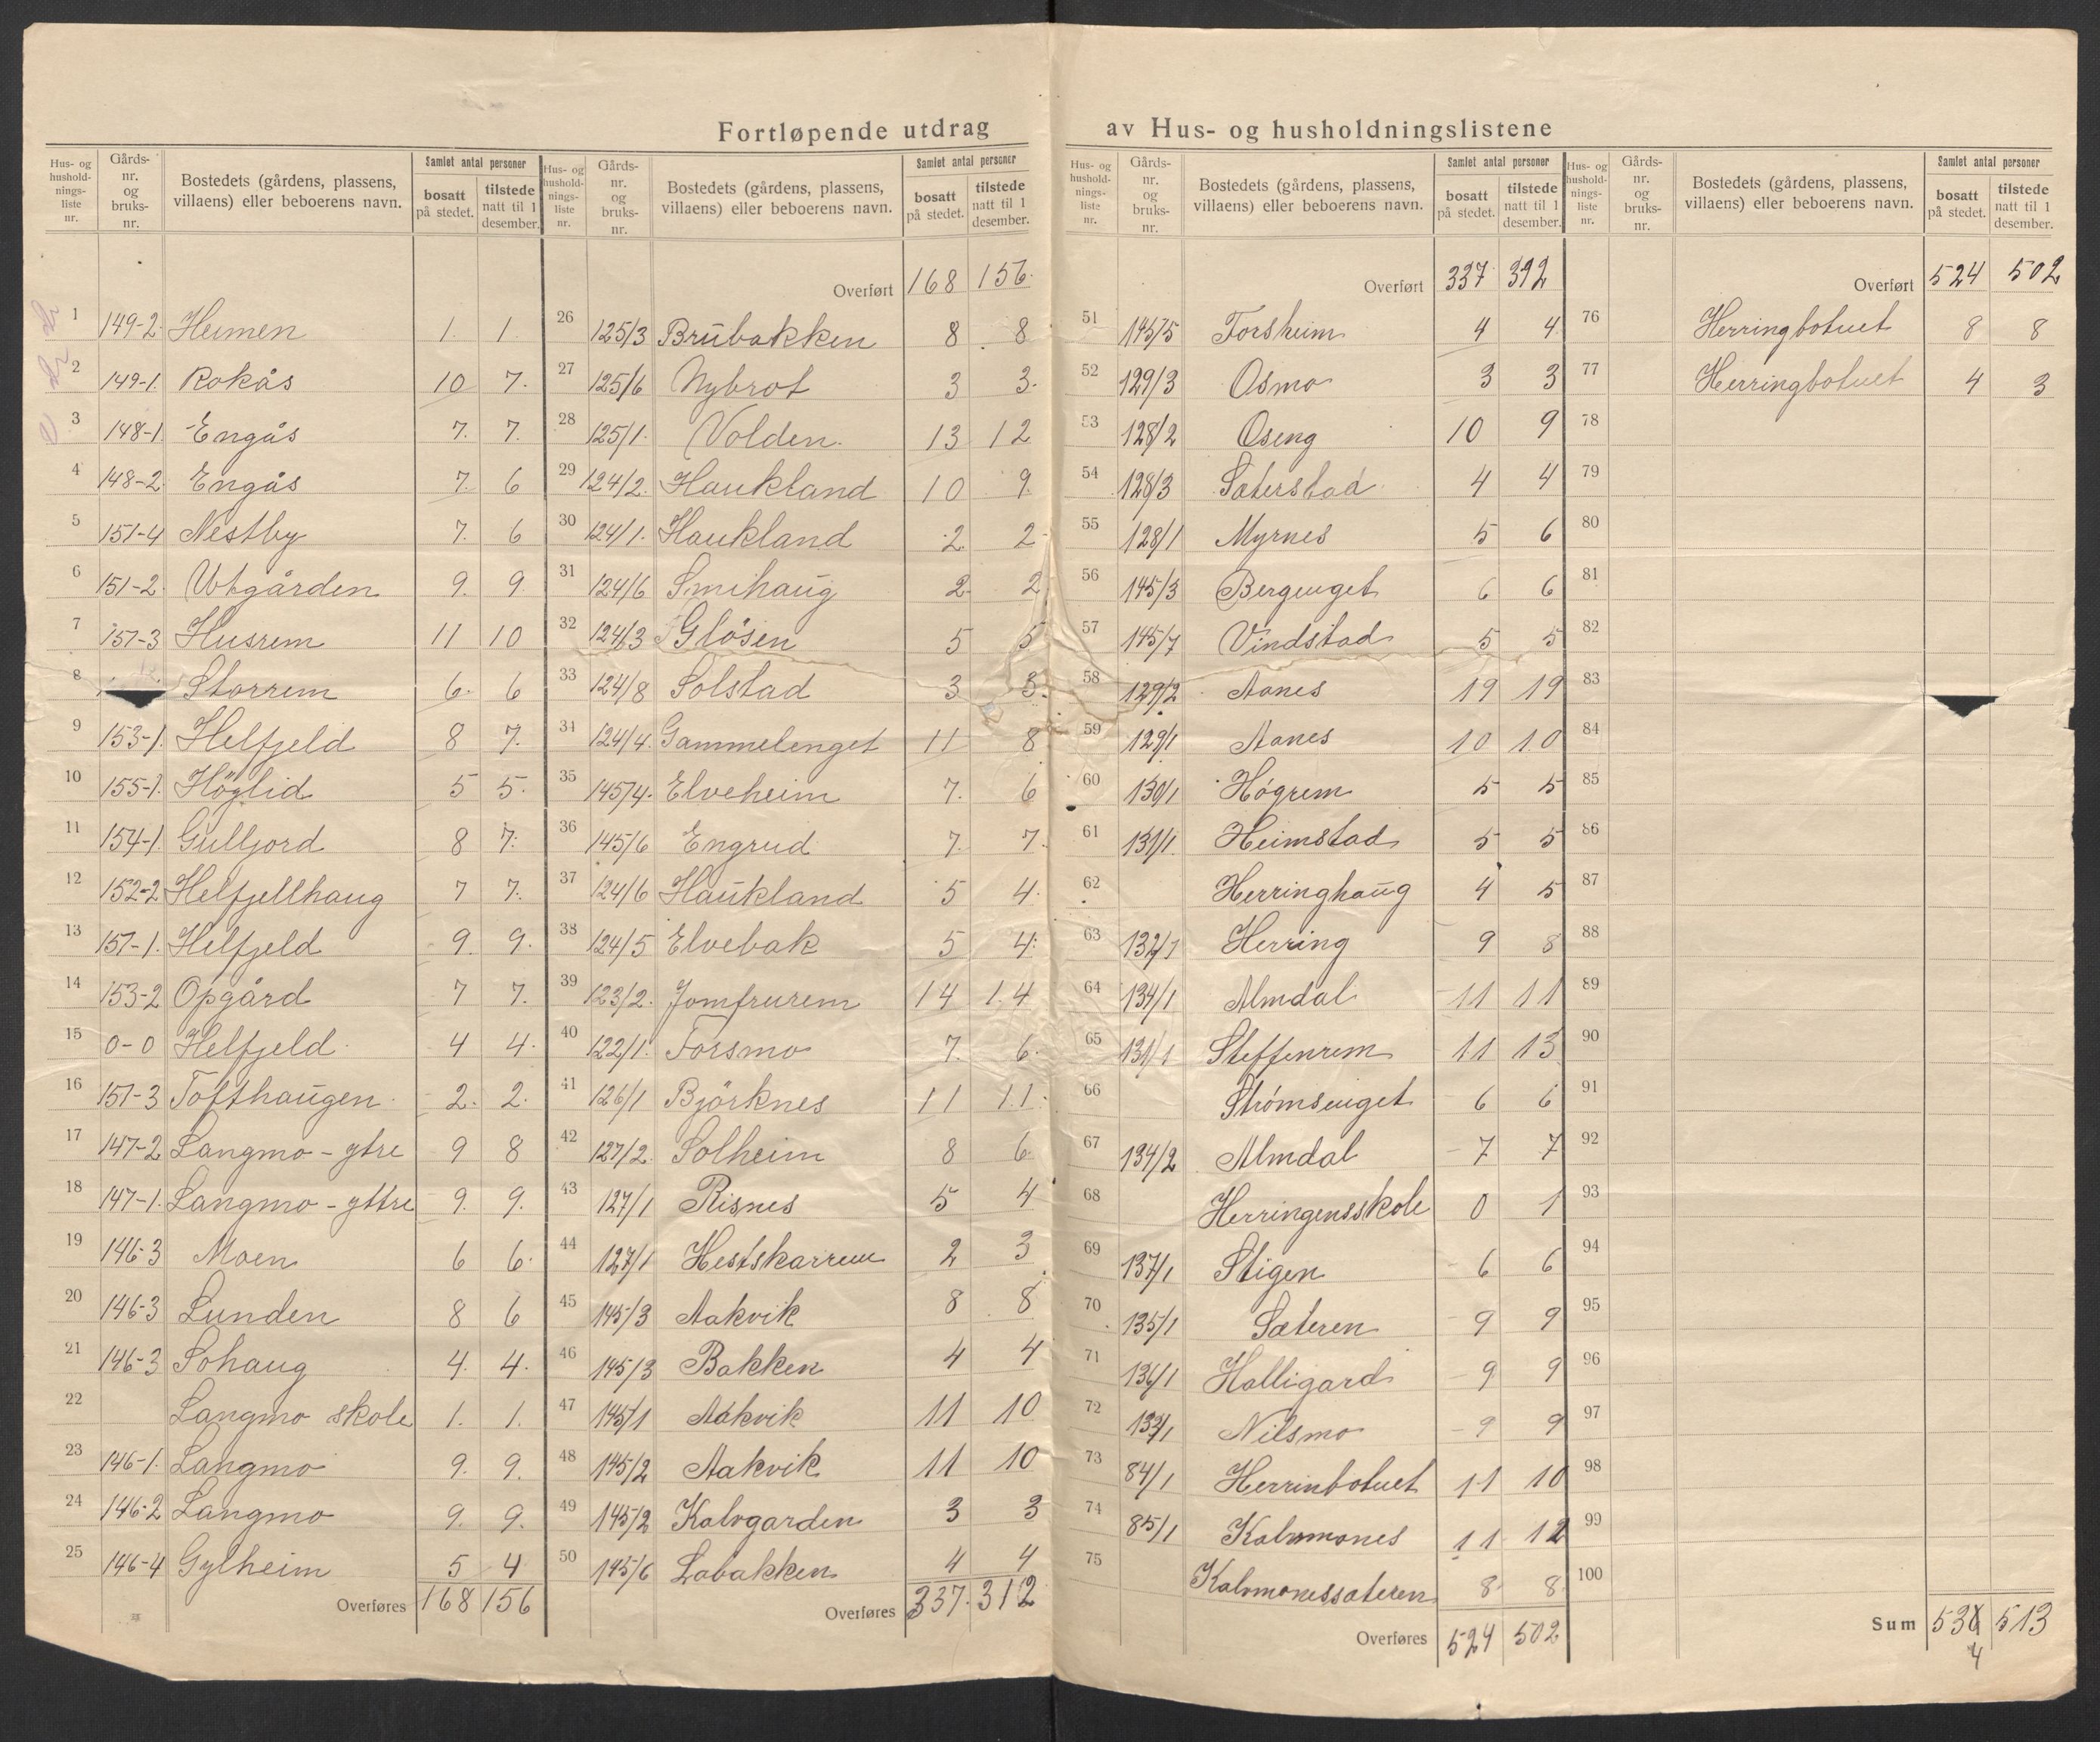 Fortløpende utdrag av Hus- og husholdningslistene
Hus- og hushold-nings-liste nr. Gårds-nr. og bruks-nr. Bostedets (gårdens, plassens, villaens) eller beboerens navn. Samlet antal personer bosatt på stedet. tilstede natt til 1 desember.
1 149-2 Heimen 1. 1.
2 149-1. Rokås 10 7.
3 148-1 Engås 7. 7.
4 148-2 Engås 7. 6
5 151-4 Nestby 7. 6
6 151-2. Utgården 9. 9
7 151-3 Husrem 11 10
8 Storrem 6. 6
9 153-1. Helfjeld 8 7.
10 155-1. Höglid 5 5.
11 154-1. Gulljord 8 7.
12 152-2 Helfjellhaug 7 7.
13 151-1. Helfjeld 9. 9.
14 153-2 Opgård 7 7.
15 0-0 Helfjeld 4 4.
16 151-3 Tofthaugen 2. 2.
17 147-2 Langmo - ytre 9 8
18 147-1. Langmo - yttre 9. 9.
19 146-3 Moen 6 6.
20 146-3 Lunden 8 6
21 146-3 Sohaug 4. 4.
22 Langmo skole 1. 1.
23 146-1. Langmo 9. 9.
24 146-2 Langmo 9. 9.
25 146-4 Gylheim 5 4
Overføres 168 156
Hus- og hushold-nings-liste nr. Gårds-nr. og bruks-nr. Bostedets (gårdens, plassens, villaens) eller beboerens navn. Samlet antal personer bosatt på stedet. tilstede natt til 1 desember.
Overført 168 156.
26 125/3 Brubakken 8 8
27 125/6 Nybrot 3 3.
28 125/1. Volden. 13 12
29 124/2. Haukland 10 9.
30 124/1. Haukland 2 2
31 124/6 Smihaug 2 2
32 124/3 Glösen 5 5
33 124/8 Solstad 3 3.
34 124/4. Gammelenget 11 8
35 145/4. Elveheim 7. 6
36 145/6 Engrud 7. 7.
37 124/6 Haukland 5 4.
38 124/5 Elvebak 5 4.
39 123/2. Jomfrurem 14 14
40 122/1. Forsmo 7. 6.
41 126/1 Björknes 11 11.
42 127/2. Solheim 8 6.
43 127/1 Risnes 5 4
44 127/1 Hestskarrem 2 3
45 145/3 Aakvik 8 8
46 145/3 Bakken 4 4
47 145/1 Aakvik 11 10
48 145/2 Aakvik 11 10
49 145/2 Kalvgarden 3 3
50 145/6 Labakken 4 4
Overføres 337. 312
Hus- og hushold-nings-liste nr. Gårds-nr. og bruks-nr. Bostedets (gårdens, plassens, villaens) eller beboerens navn. Samlet antal personer bosatt på stedet. tilstede natt til 1 desember.
Overført 337 312
51 145/5 Forsheim 4 4
52 129/3 Osmo 3 3
53 128/2 Oseng 10 9
54 128/3 Sæterstad 4 4
55 128/1 Myrnes 5 6
56 145/3 Bergenget 6 6
57 145/7 Vindstad 5 5
58 129/2 Aanes 19 19
59 129/1 Aanes 10 10
60 130/1 Høgrem 5 5
61 131/1. Heimstad 5 5
62 Herringhaug 4 5
63 132/1 Herring 9 8
64 134/1 Almdal 11 11
65 131/1 Steffenrem 11 13
66 Strømsenget 6 6
67 134/2 Almdal 7 7
68 Herringensskole 0 1
69 137/1 Stigen 6 6
70 135/1 Sæteren 9 9
71 136/1 Halligard 9 9
72 Nilsmo 9 9
73 84/1 Herrinbotnet 11 10
74 85/1 Kalvmones 11 12
75 Kalvmonessæteren 8 8
Overføres 524 502
Hus- og hushold-nings-liste nr. Gårds-nr. og bruks-nr. Bostedets (gårdens, plassens, villaens) eller beboerens navn. Samlet antal personer bosatt på stedet. tilstede natt til 1 desember.
Overført 524 502
76 Herringbotnet 8 8
77 Herringbotnet 4 3
78
79
80
81
82
83
84
85
86
87
88
89
90
91
92
93
94
95
96
97
98
99
100
Sum 536 513
4